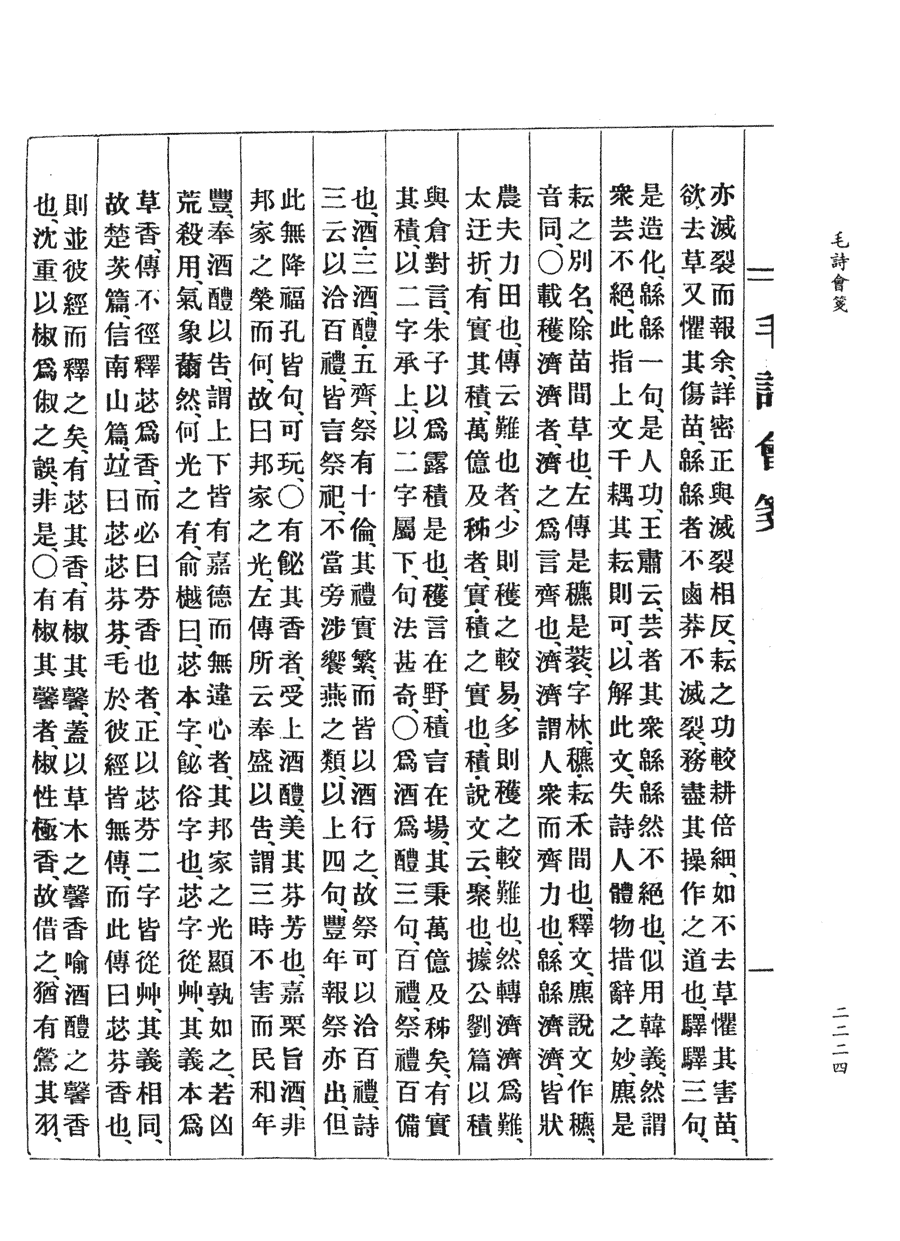 毛詩會箋
二二二四
毛詩會箋
亦滅裂而報余、詳密正與滅裂相反、耘之功較耕倍細、如不去草懼其害苗、
欲去草又懼其傷苗、緜緜者不鹵莽不滅裂、務盡其操作之道也、驛驛三句、
是造化、緜緜一句、是人功、王肅云、芸者其衆緜緜然不絕也、似用韓義、然謂
衆芸不絕、此指上文千耦其耘則可、以解此文、失詩人體物措辭之妙、麃是
耘之別名、除苗間草也、左傳是穮是蔉、字林、穮、耘禾間也、釋文、麃說文作穮、
音同、○載穫濟濟者、濟之為言齊也、濟濟謂人衆而齊力也、緜濟濟、皆狀
農夫力田也、傳云難也者、少則穫之較易、多則穫之較難也、然轉濟濟爲難、
太迂折、有實其積、萬億及秭者、實、積之實也、積、說文云、聚也、據公劉篇以積
與倉對言、朱子以爲露積是也、穫言在野、積言在場、其秉萬億及秭矣、有實
其積、以二字承上、以二字屬下、句法甚奇、○爲酒爲醴三句、百禮、祭禮百備
也、酒、三酒、醴、五齊、祭有十倫、其禮實繁、而皆以酒行之、故祭可以洽百禮、詩
三云以洽百禮、皆言祭祀、不當旁涉饗燕之類、以上四句、豐年報祭亦出、但
此無降福孔皆句、可玩、○有飶其香者、受上酒醴、美其芬芳也、嘉栗旨酒、非
邦家之榮而何、故曰邦家之光、左傳所云奉盛以告、謂三時不害而民和年
豐、奉酒醴以告、謂上下皆有嘉德而無違心者、其邦家之光顯孰如之、若凶
荒殺用、氣象薾然、何光之有、俞樾曰、苾本字、飶俗字也、苾字從艸、其義本爲
草香、傳不徑釋苾爲香、而必曰芬香也者、正以苾芬二字皆從艸、其義相同、
故楚茨篇、信南山篇、竝曰苾苾芬芬、毛於彼經皆無傳、而此傳曰苾芬香也、
則並彼經而釋之矣、有苾其香、有椒其馨、蓋以草木之馨香喻酒醴之馨香
也、沈重以椒爲俶之誤、非是、○有椒其馨者、椒性極香、故借之、猶有鶯其羽、